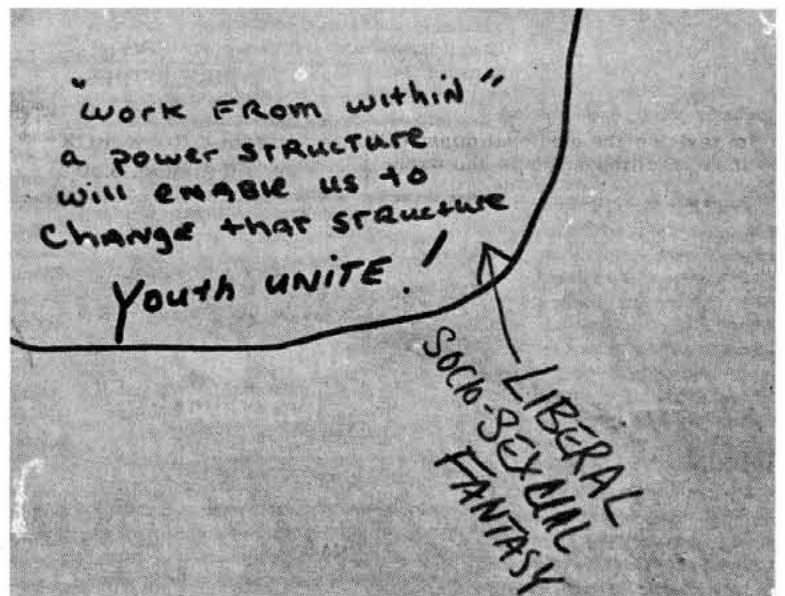 "work FROM within"
a power STRUCTURE
will ENABLE us to
CHANGE that STRUCTURE
Youth UNITE!
LIBERAL
SOCIO-SEXUAL
FANTASY